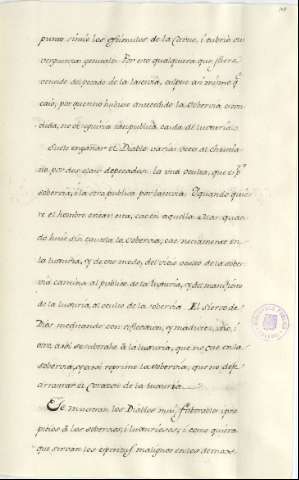 punto sintió los estimulos de la Carne, i cubrió su
verguenza genital. Por esto qualquiera que fuere
vencido del pecado de la lascivia, culpe asi mismo q.e
caió, por quanto si no hubiese antecedido la sobervia escon
dida, no se seguiria la publica caida de luxuria.
Suele engañar el Diablo varias veces al Christia
no por dos clases de pecados: la una oculta, que es p.r
sobervia; i la otra publica por lascivia. Y quando quie
re el hombre evitar esta, cae en aquella. Otras quan
do huie sin cautela la sobervia, cae neciamente en
la luxuria, y de ese modo, del vicio oculto de la sober
via camina al publico de la luxuria, y del manifiesto
de la luxuria, al oculto de la sobervia. El siervo de
Dios meditando con reflexion, y madurez, uno, i
otro, asi se sustrahe à la luxuria, que no cae en la
sobervia, y asi reprime la sobervia, que no deje
arrastrar el corazon de la luxuria.
Se muestran los Diablos mui favorables i pro
picios à los sobervios, i luxuriosos; i como quiera
que sirvan los espiritus malignos en los demas